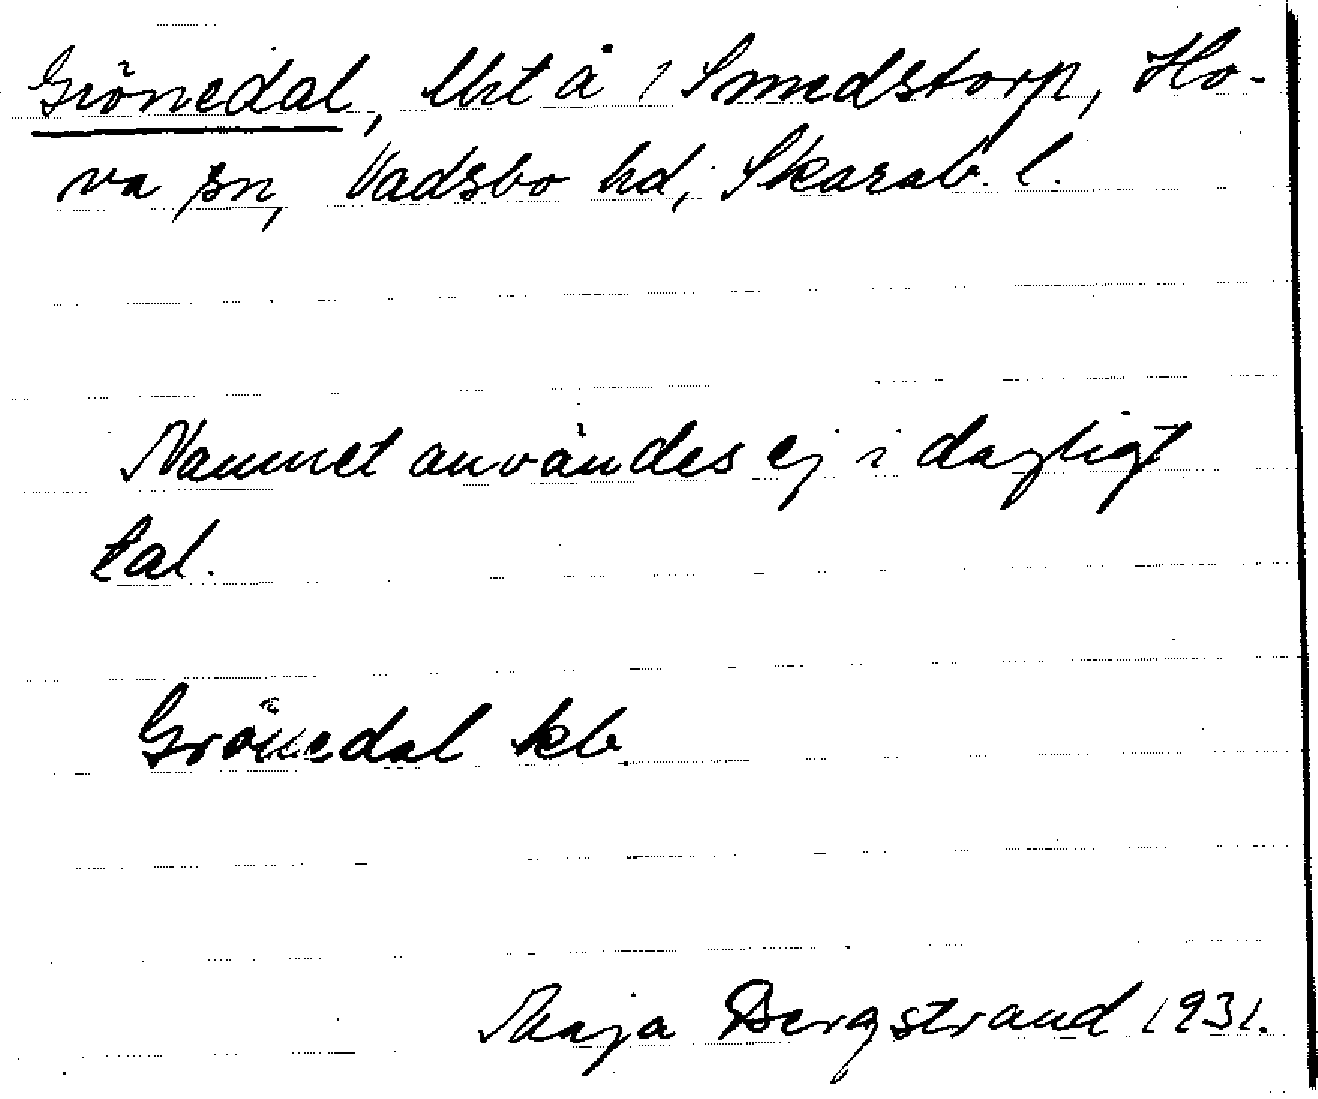 Grönedal, lht å 1 Smedstorp, Ho-
va sn, Vadsbo hd, Skarab. l.
Namnet användes ej i dagligt
tal.
Grönedal kb
Maja Bergstrand 1931.